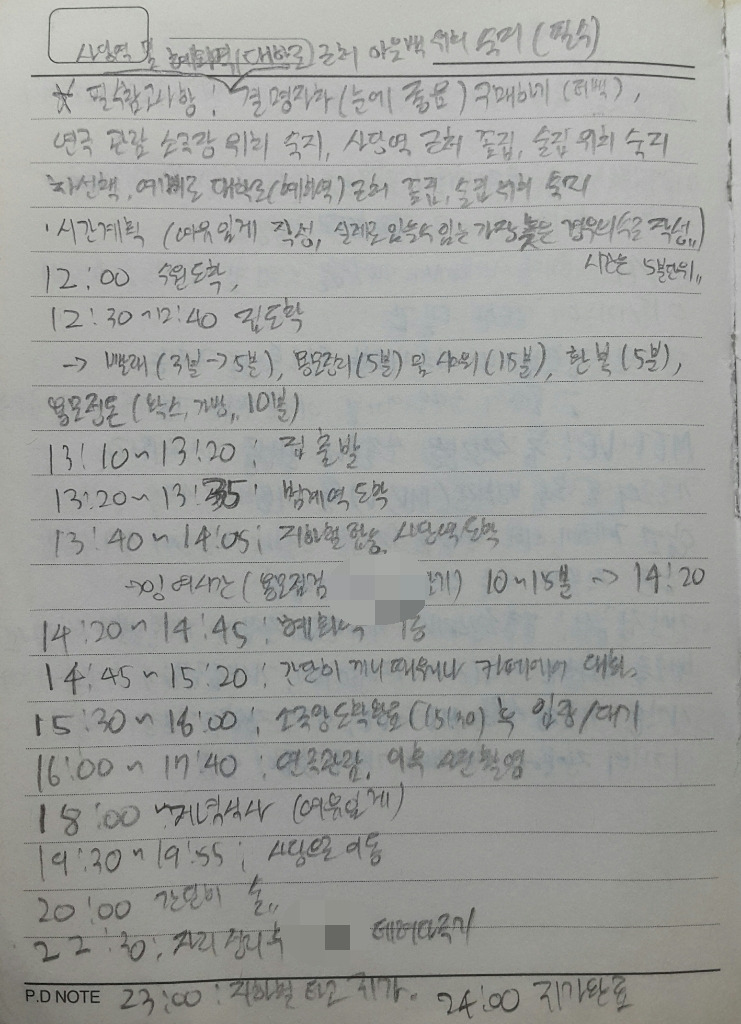 사당역 및 혜화역(대학로) 근처 아웃백 위치 숙지 (필수)
☆ 필수참고사항 : 결명자차 (눈에 좋음) 구매하기 (티백),
연극 관람 소극장 위치 숙지, 사당역 근처 꽃집, 술집 위치 숙지
차선책, 예비로 대학로(혜화역) 근처 꽃집, 술집 위치 숙지
· 시간계획 (여유있게 작성, 실제로 일 수 있는 가장 늦은 경우의 수로 작성,,)
12:00 수원도착, 시간은 5분단위,,
12:30~12:40 집도착
→ 빨래 (3분→5분), 용모정리(5분) 및 샤워(15분), 환복 (5분),
용모점돈 (왁스, 가방,, 10분)
13:10~13:20 : 집 출발
13:20~13:35 : 범계역 도착
13:40~14:05 : 지하철 탑승, 사당역 도착
→ 잉여시간 (용모점검 10~15분 → 14:20
14:20~14:45 : 혜화
14:45~15:20 : 간단히 끼니 때우거나 카페에서 대화.
15:30~16:00 : 소극장 도착완료 (15:30) 후 입장/대기
16:00~17:40 : 연극관람, 이후 사진촬영
18:00 ~ 저녁식사 (여유있게)
19:30~19:55 : 사당으로 이동
20:00 간단히 술,,
22:30 : 자리 정리후 데려다주기
P.D NOTE 23:00 : 지하철 타고 귀가. 24:00 귀가완료